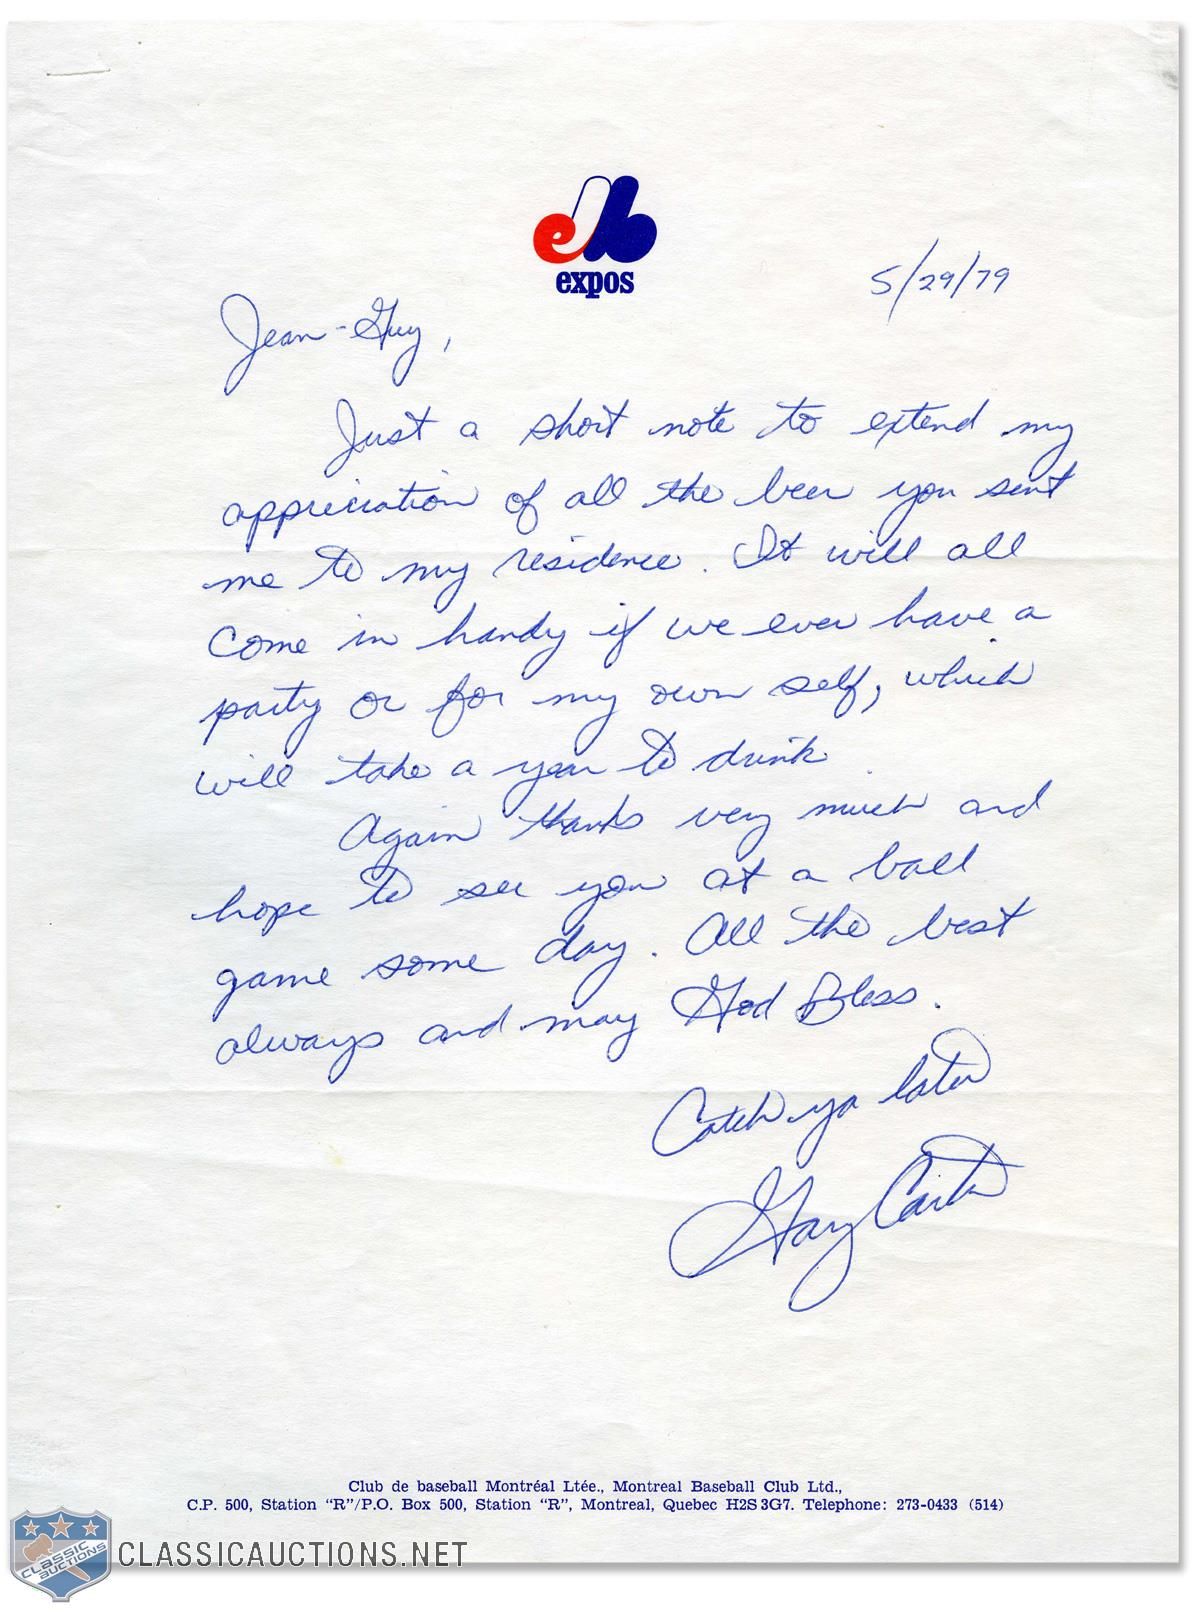 expos
5/29/79
Jean-Guy,
Just a short note to extend my
appriciation of all the beer you sent
me to my residence. It will all
come in handy if we ever have a
party or for my own self, which
will take a year to drink.
Again thanks very much and
hope to see you at a ball
game some day. All the best
always and may God Bless.
Catch ya later
Gary Carter
Club de baseball Montréal Ltée., Montreal Baseball Club Ltd.,
C.P. 500, Station "R"/P.O. Box 500, Station "R", Montreal, Quebec H2S 3G7. Telephone: 273-0433 (514)
CLASSIC AUCTIONS
CLASSICAUCTIONS.NET